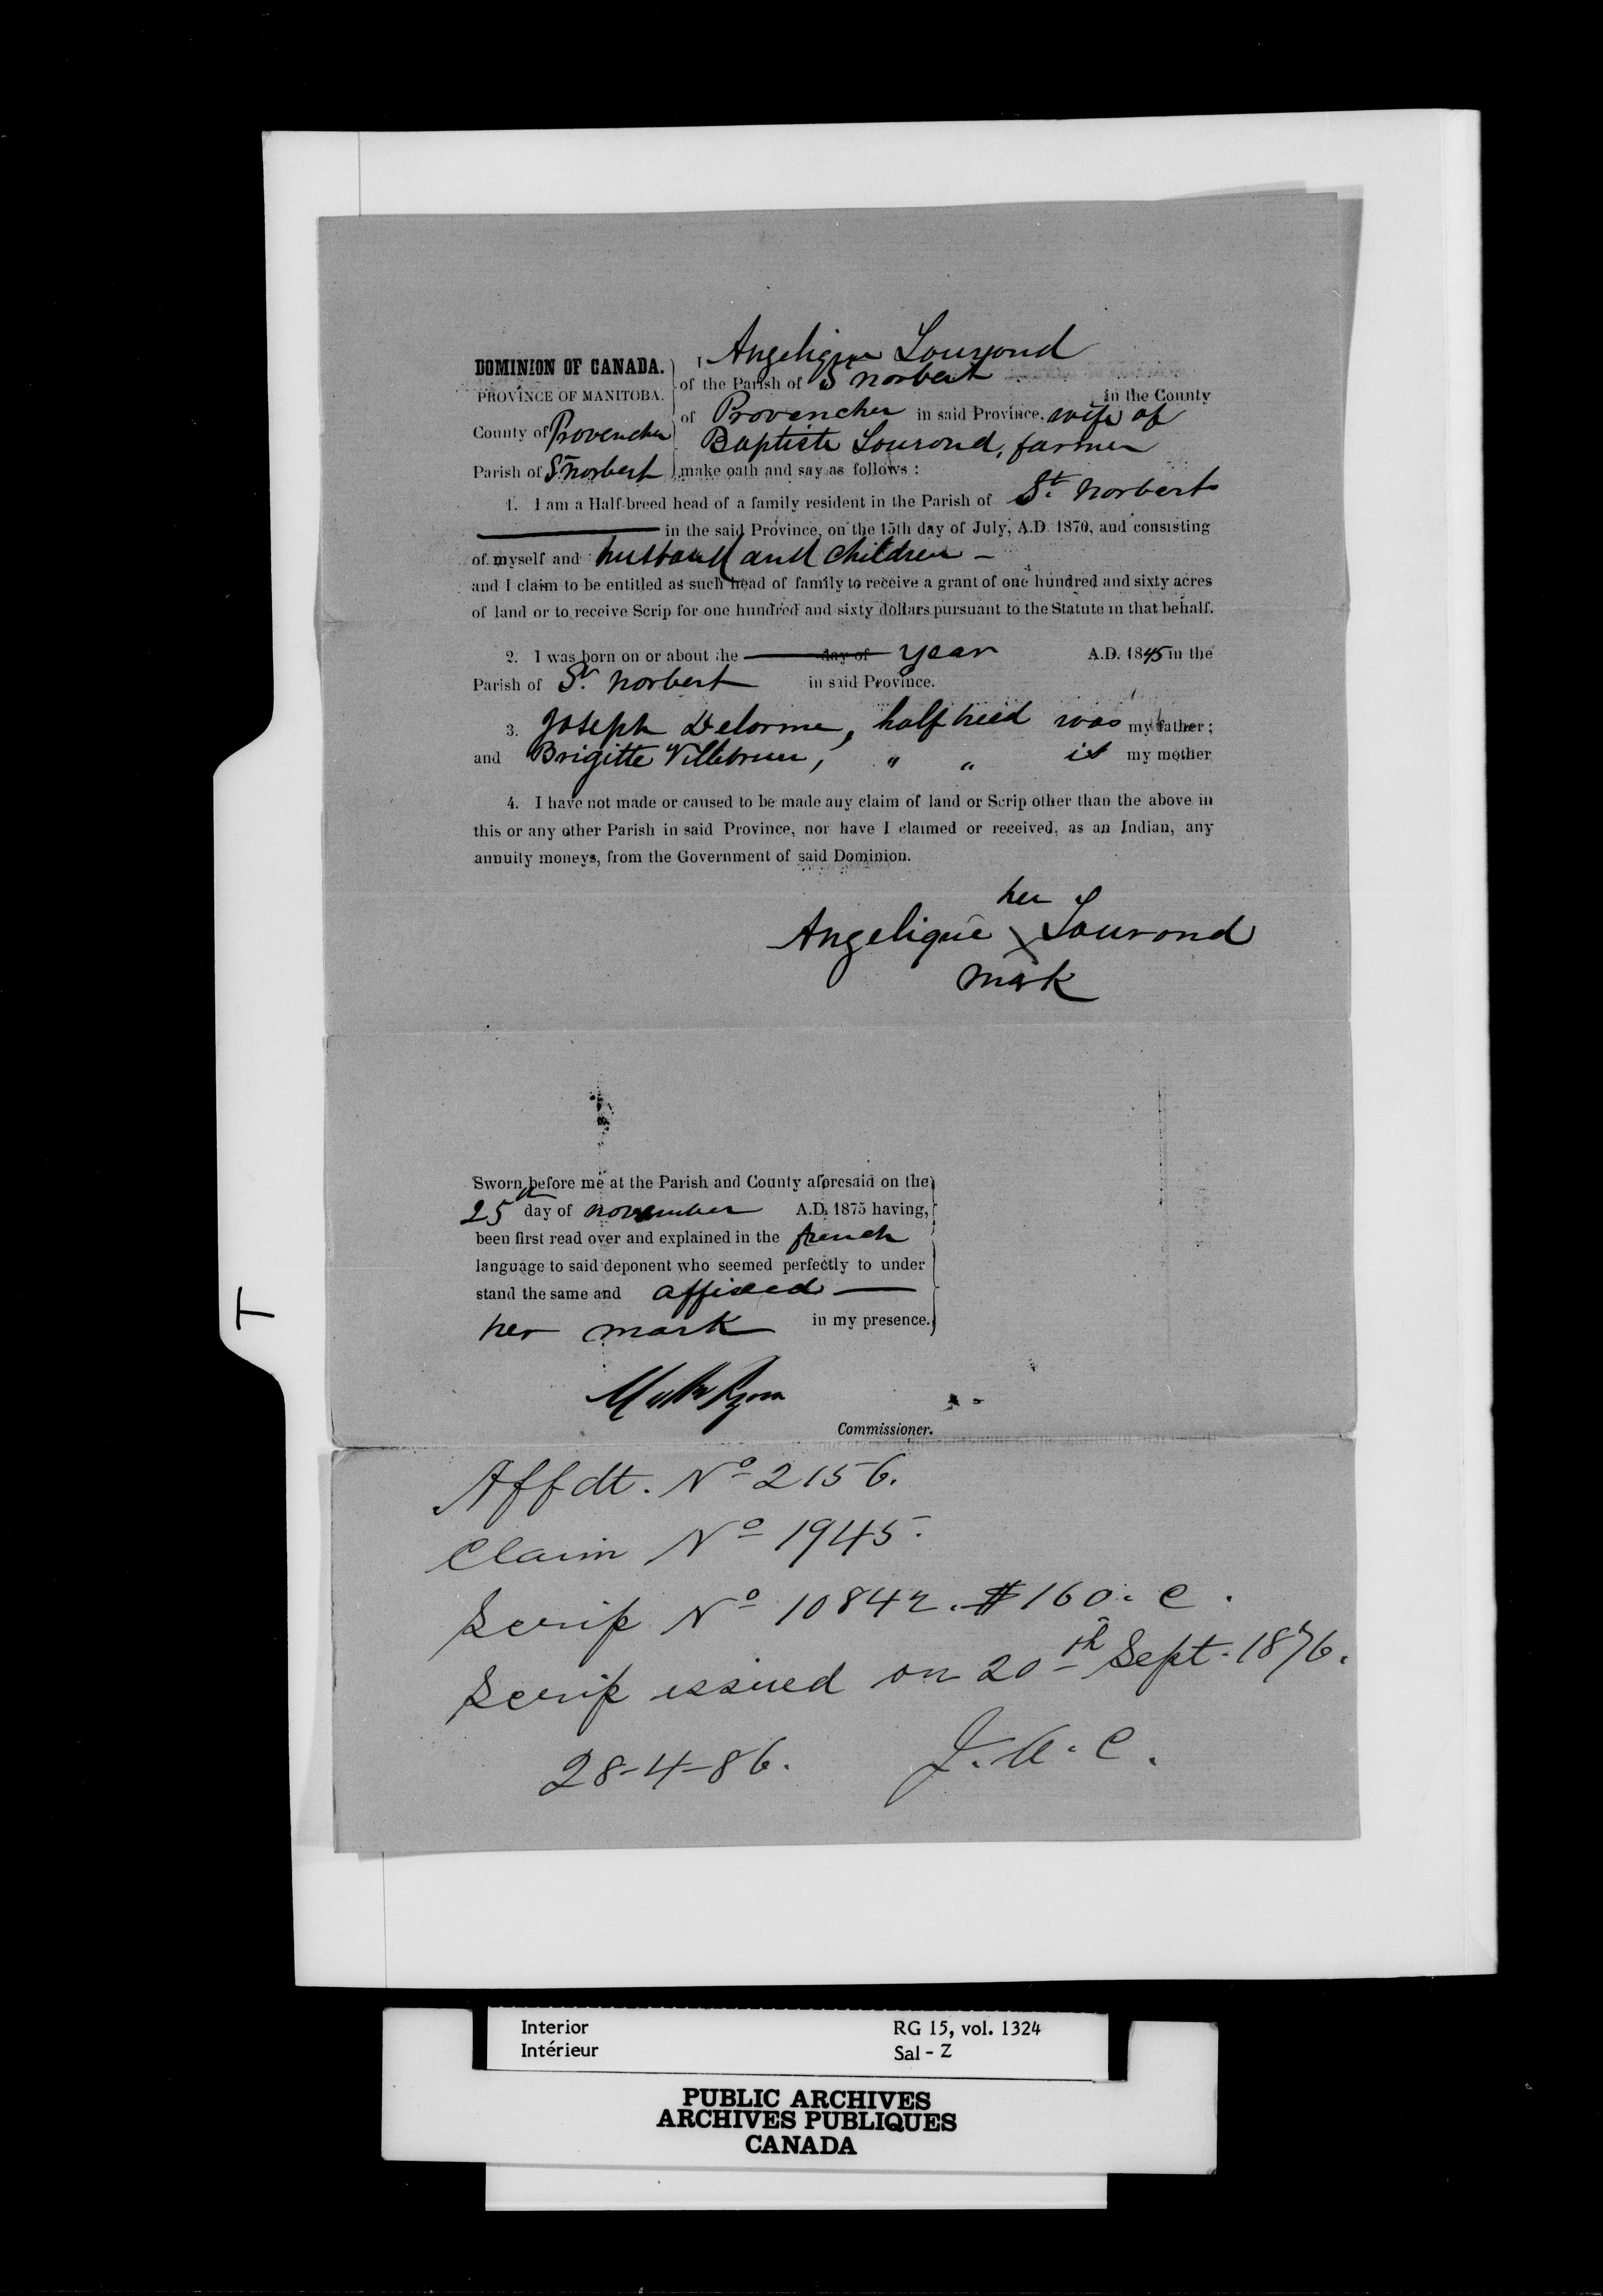 DOMINION OF CANADA.
PROVINCE OF MANITOBA.
County of Provencher
Parish of St. Norbert
I Angelique Lourond
of the Parish of St Norbert in the County
of Provencher in said Province, wife of
Baptiste Lourond, farmer
make oath and say as follows :
1. I am a Half-breed head of a family resident in the Parish of St. Norbert
in the said Province, on the 15th day of July, A.D. 1870, and consisting
of myself and husband and children -
and I claim to be entitled as such head of family to receive a grant of one hundred and sixty acres
of land or to receive Scrip for one hundred and sixty dollars pursuant to the Statute in that behalf.
2. I was born on or about the day of year A.D. 1845 in the
Parish of St. Norbert in said Province.
3. Joseph Delorme, halfbreed was my father ;
and Brigitte Villebrun, " " is my mother
4. I have not made or caused to be made any claim of land or Scrip other than the above in
this or any other Parish in said Province, nor have I claimed or received, as an Indian, any
annuity moneys, from the Government of said Dominion.
her
Angelique X Lourond
mark
Sworn before me at the Parish and County aforesaid on the
25th day of November A.D. 1875 having,
been first read over and explained in the french
language to said deponent who seemed perfectly to under
stand the same and affixed
her mark in my presence.
Commissioner.
Affdt. No 2156.
Claim No 1945.
Scrip No 10842. $160. C.
Scrip issued on 20th Sept. 1876.
28-4-86. J. A. C.
T
Interior RG 15, vol. 1324
Intérieur Sal - Z
PUBLIC ARCHIVES
ARCHIVES PUBLIQUES
CANADA